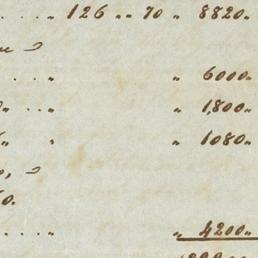 . . . " 126 " " 70 " 8820 "
. . . " " 6000 "
" . . . " " 1,800 "
" " " 1080 "
0.
. . . . " " 4200 "